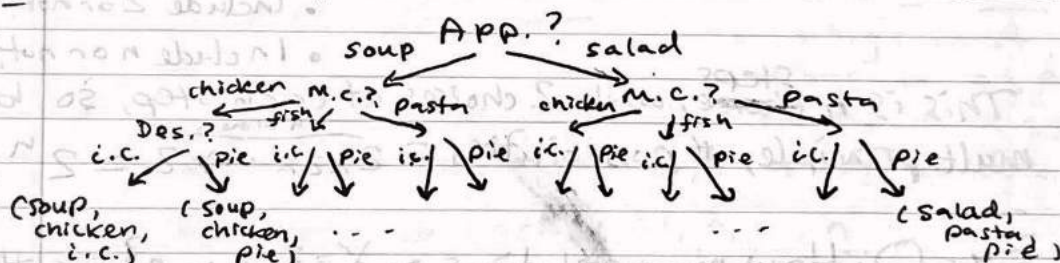 App.?
soup salad
chicken M.C.? pasta chicken M.C.? pasta
Des.? fish fish
i.c. pie i.c. pie i.c. pie i.c. pie i.c. pie i.c. pie
(soup, chicken, i.c.) (soup, chicken, pie) ... ... (salad, pasta, pie)